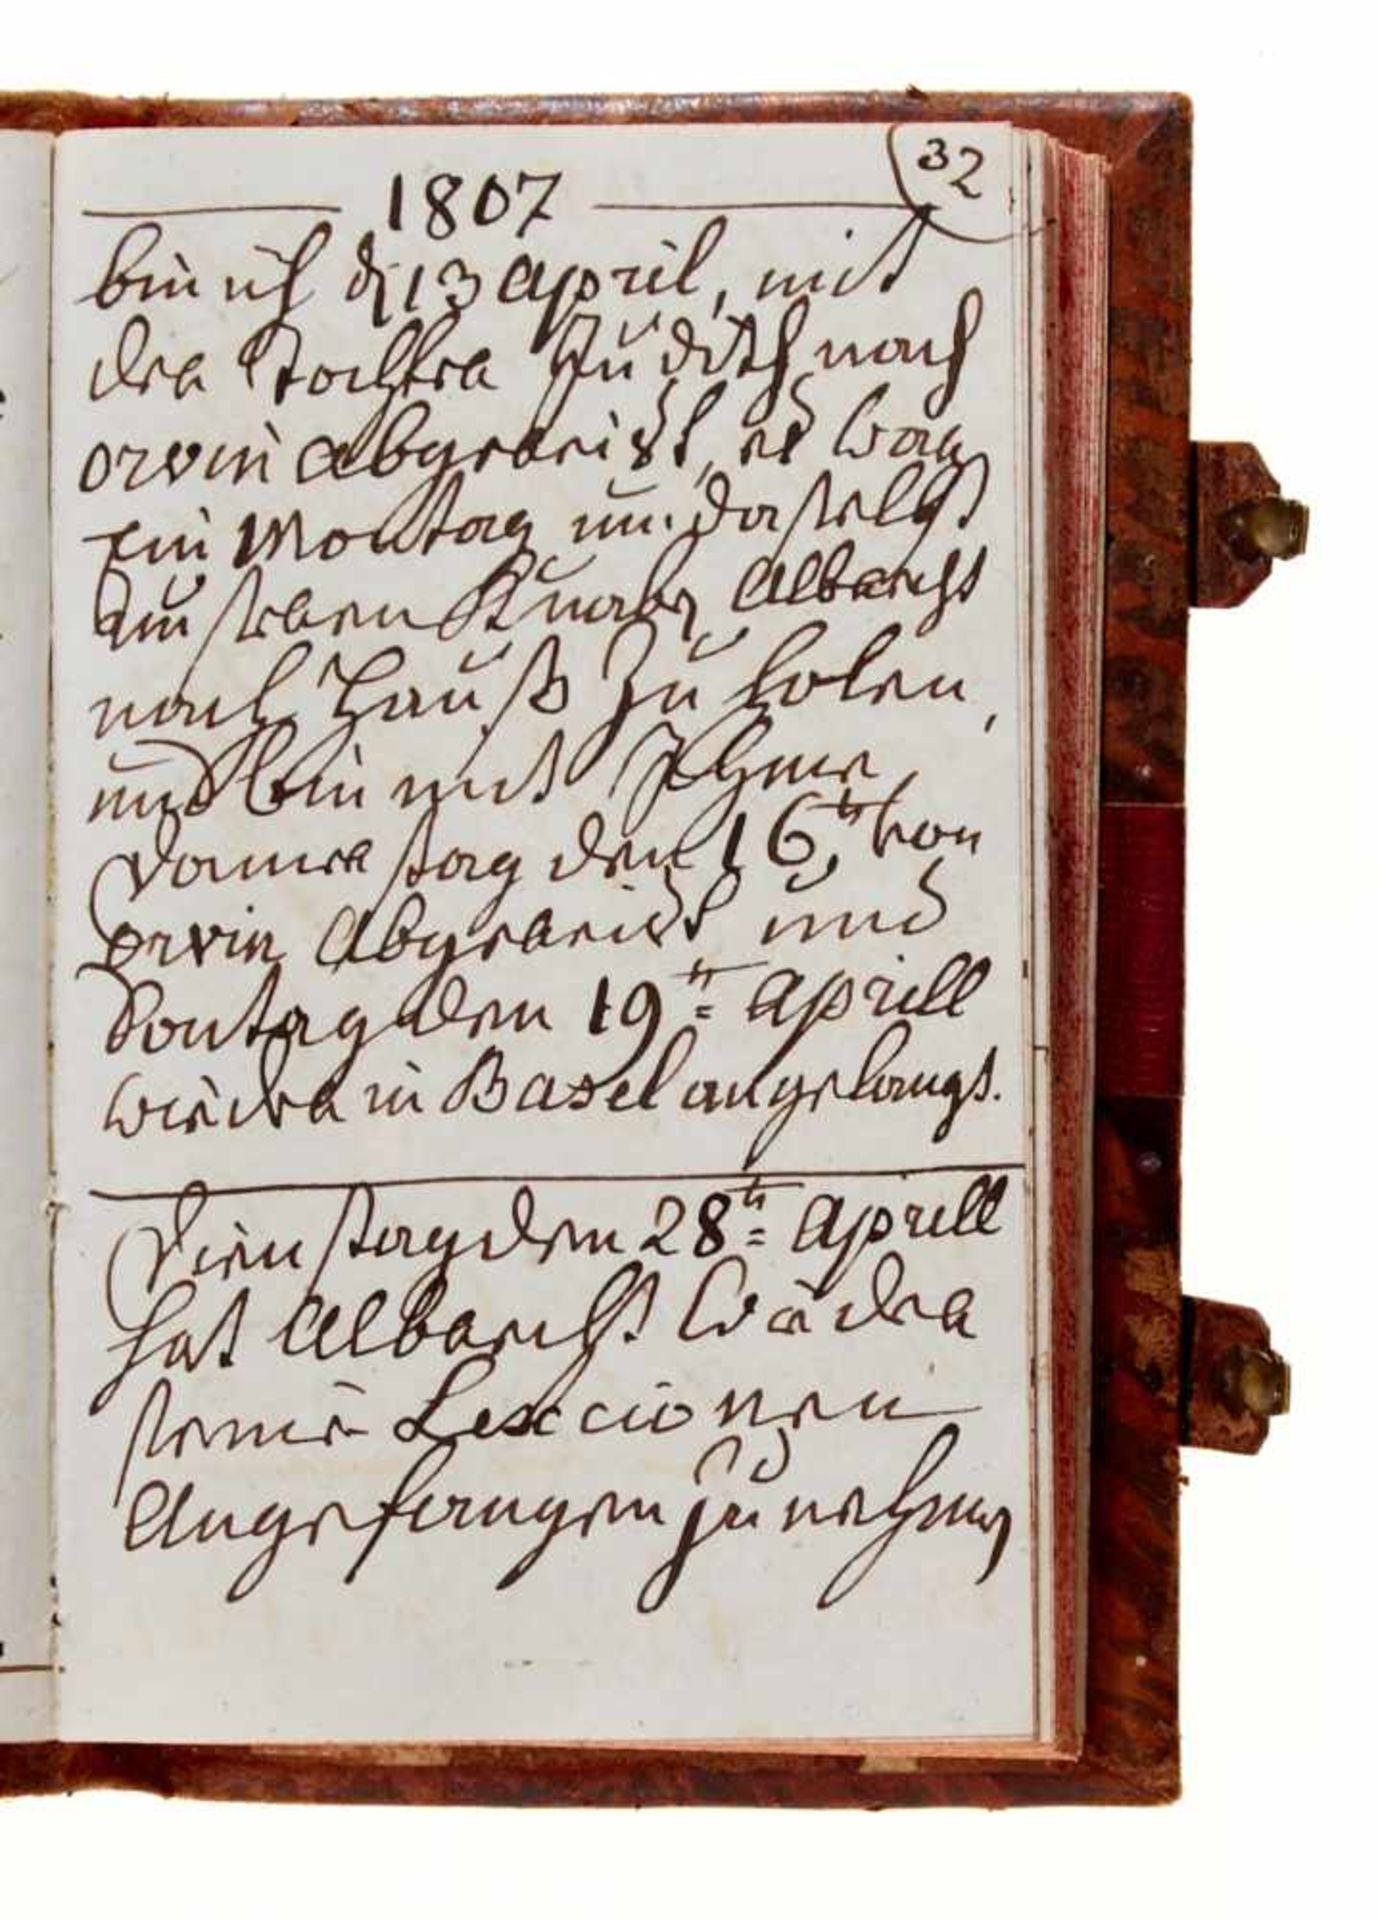 32
1807
bin ich dn 13 April, mit
der Tochter Judith nach
orvin abgereist, es war
Ein Montag um daselbst
unseren Knaben Albrecht
nach Hauß Zu holen,
und bin mit Ihme
Donnerstag den 16tn von
orvin Abgereist und
Sontag den 19tn Aprill
wieder in Basel angelangt.
Dienstag den 28tn Aprill
hat Albrecht wieder
seine Lexcionen
Angefangen zu nehmen